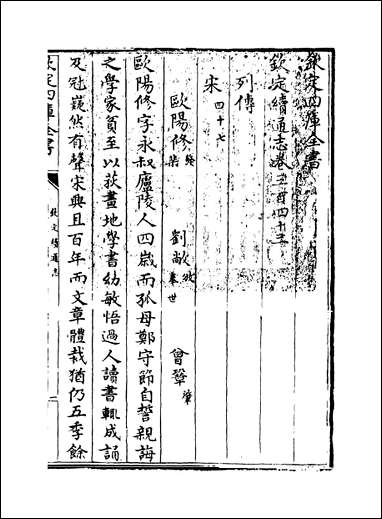 欽定四庫全書
欽定續通志卷三百四十三
列傳
宋四十七
歐陽修 劉敞攽奉世 曾鞏肇
歐陽修字永叔廬陵人四歲而孤母鄭守節自誓親誨
之學家貧至以荻畫地學書幼敏悟過人讀書輒成誦
及冠嶷然有聲宋興且百年而文章體裁猶仍五季餘
欽定四庫全書
欽定續通志